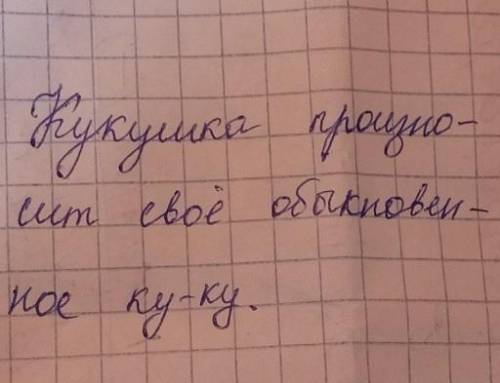 Кукушка произно-
сит своё обыкновен-
ное ку-ку.